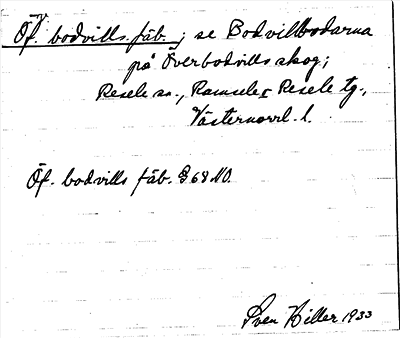 Öf. bodvills fäb.; se Bodvillbodarna
på Överbodvills skog;
Resele sn., Ramsele o Resele tg.,
Västernorrl. l.
Öf. bodvills fäb. § 68 NO.
Sven Hiller 1933